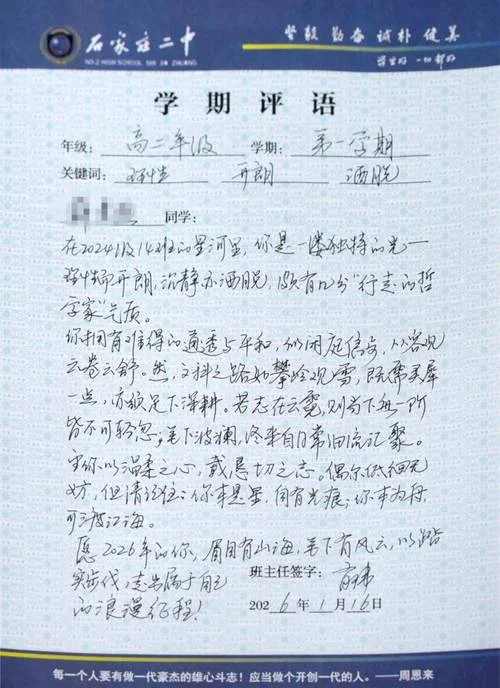 石家庄二中
NO.2 HIGH SCHOOL SHI JIA ZHUANG
坚毅 勤奋 诚朴 健美
学生好 一切都好
学期评语
年级: 高二年级 学期: 第一学期
关键词: 理性 开朗 洒脱
同学:
在2024级14班的星河里,你是一缕独特的光—
理性而开朗,沉静亦洒脱,颇有几分“行走的哲
学家”气质。
你拥有难得的通透与平和,似闲庭信步,从容观
云卷云舒。然,文科之路如攀岭观雪,既需灵犀
一点,亦须足下深耕。若志在云霓,则当下每一阶
皆不可轻忽;笔下波澜,终来自日常细流汇聚。
愿你以温柔之心,载恳切之志。偶尔
无妨,但请记住:你本是星,自有光痕;你本为舟
可渡江海。
愿2026年的你,眉目有山海,笔下有风云,以踏
实步伐,走出属于自己
的浪漫征程!
班主任签字:
2026年1月16日
每一个人要有做一代豪杰的雄心斗志!应当做个开创一代的人。——周恩来